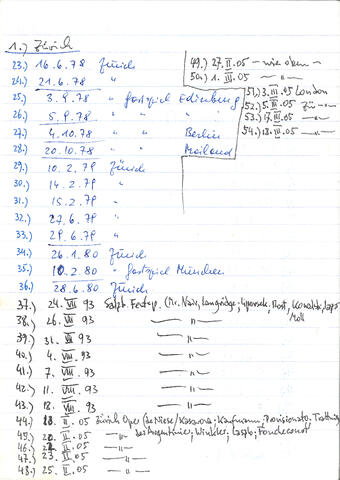 1.) Zürich
23.) 16.6.78 Zürich
24.) 21.6.78 "
25.) 3.9.78 " Gastspiel Edinburg
26.) 5.9.78 " "
27.) 4.10.78 " Berlin
28.) 20.10.78 " Mailand
29.) 10.2.79 Zürich
30.) 14.2.79 "
31.) 15.2.79 "
32.) 27.6.79 "
33.) 29.6.79 "
34.) 26.1.80 Zürich
35.) 10.2.80 " Gastspiel München
36.) 28.6.80 Zürich
37.) 24. VII 93 Salzb. Festsp. (McNair, Langridge;
38.) 26. VII 93 — " —
Moll
39.) 31. VII 93 — " —
40.) 4. VIII. 93 — " —
41.) 7. VIII. 93 — " —
42.) 11. VIII. 93 — " —
43.) 12. VIII. 93 — " —
44.) 18. II. 05 Zürich Oper (De Niese/Kasarova; Kaufmann; Provisionato.
45.) II. 05 — " — Winkler;
46.) II. 05 — " —
47.) 23. II. 05 — " —
48.) 25. II. 05 — " —
49.) 27. II. 05 – wie oben –
50.) 1. III. 05 — " —
51.) 3. III. 05 London
52.) 5. III. 05 Zü — " —
53.) III. 05 — " —
54.) III. 05 — " —